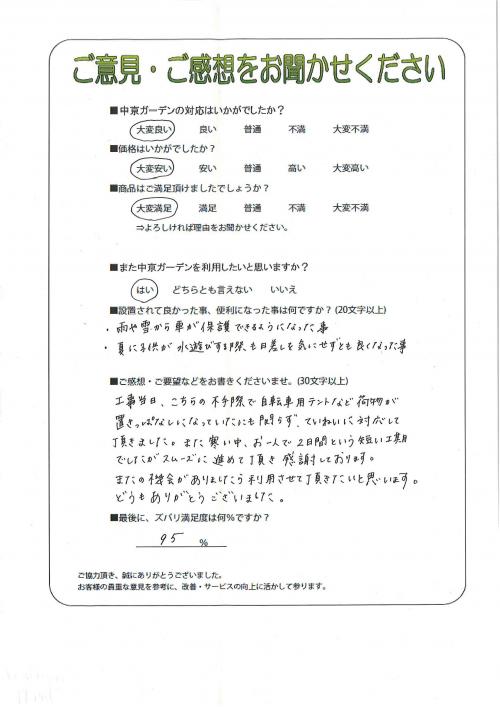 ご意見・ご感想をお聞かせください
■中京ガーデンの対応はいかがでしたか？
大変良い 良い 普通 不満 大変不満
■価格はいかがでしたか？
大変安い 安い 普通 高い 大変高い
■商品はご満足頂けましたでしょうか？
大変満足 満足 普通 不満 大変不満
⇒よろしければ理由をお聞かせください。
■また中京ガーデンを利用したいと思いますか？
はい どちらとも言えない いいえ
■設置されて良かった事、便利になった事は何ですか？(20文字以上)
・雨や雪から車が保護できるようになった事
・夏に子供が水遊びする際も日差しを気にせずとも良くなった事
■ご感想・ご要望などをお書きくださいませ。(30文字以上)
工事当日、こちらの不手際で自転車用テントなど荷物が
置きっぱなしになっていたにも関らず、ていねいに対応して
頂きました。また寒い中、お一人で2日間という短い工期
でしたがスムーズに進めて頂き感謝しております。
またの機会がありましたら利用させて頂きたいと思います。
どうもありがとうございました。
■最後に、ズバリ満足度は何％ですか？
95 %
ご協力頂き、誠にありがとうございました。
お客様の貴重な意見を参考に、改善・サービスの向上に活かして参ります。